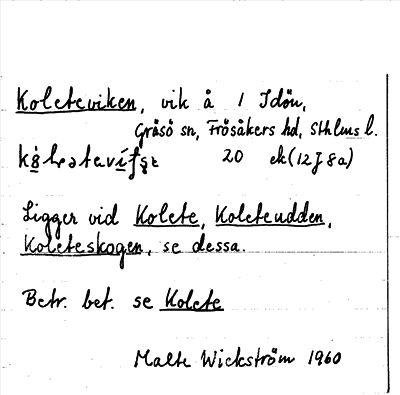 Koleteviken, vik å 1 Idön,
Gräsö sn, Frösåkers hd, Sthlms l.
20 ek (12J8a)
Ligger vid Kolete, Koleteudden,
Koleteskogen, se dessa.
Betr. bet. se Kolete
Malte Wickström 1960